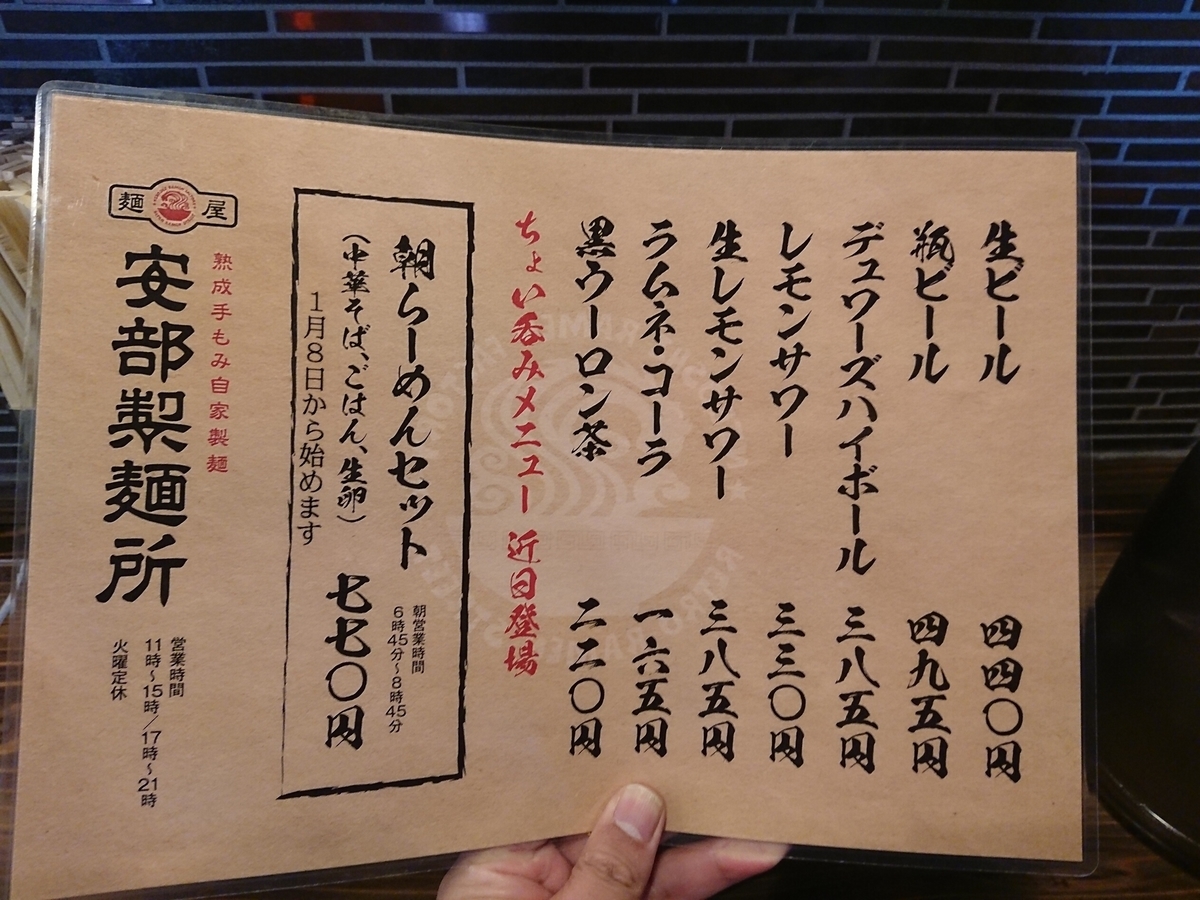 生ビール 四四〇円
瓶ビール 四九五円
デュワーズハイボール 三八五円
レモンサワー 三三〇円
生レモンサワー 三八五円
ラムネ・コーラ 一六五円
黒ウーロン茶 二二〇円
ちょい呑みメニュー 近日登場
朝らーめんセット
朝営業時間
6時45分~8時45分
(中華そば、ごはん、生卵) 七七〇円
1月8日から始めます
麺屋
熟成手もみ自家製麺
安部製麺所
営業時間
11時~15時/17時~21時
火曜定休